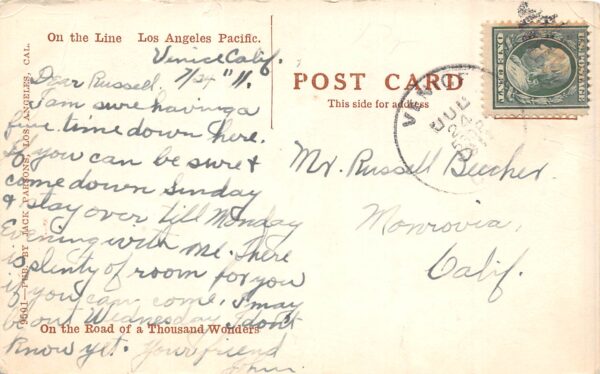 On the Line Los Angeles Pacific.
Venice Calif.
7/24 "11.
Dear Russell,
I am sure having a
fine time down here.
So you can be sure &
come down Sunday
& stay over till Monday
Evening with me. There
is plenty of room for you
if you can come. I may
be out Wednesday I don't
Know yet. Your friend
On the Road of a Thousand Wonders
9501—PUB. BY JACK PARSONS, LOS ANGELES, CAL.
POST CARD
This side for address
U.S. POSTAGE
ONE CENT
VENICE
JUL
24
Mr. Russell Beecher.
Monrovia,
Calif.